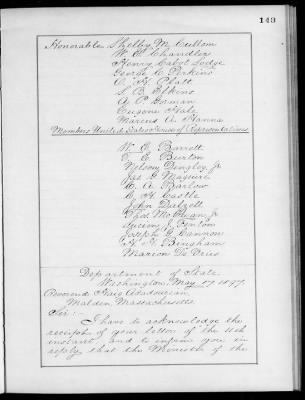 143
Honorable Shelby M. Cullom
W. E. Chandler
Henry Cabot Lodge
George C. Perkins
O. H. Platt
S. B. Elkins
A. P. Gorman
Eugene Hale
Marcus A. Hanna
Members United States House of Representatives
W. E. Barrett
T. E. Burton
Nelson Dingley, Jr.
Jas. G. Maguire
C. A. Barlow
C. H. Castle
John Dalzell
Thos. McEwan, Jr.
J. Fenton
Joseph G. Cannon
H. H. Bingham
Marion De Vries
Department of State
Washington, May 17, 1897.
Reverend
Malden, Massachusetts
Sir:-
I have to acknowledge the
receipt of your letter of the 11th
instant and to inform you in
reply that the Minister of the